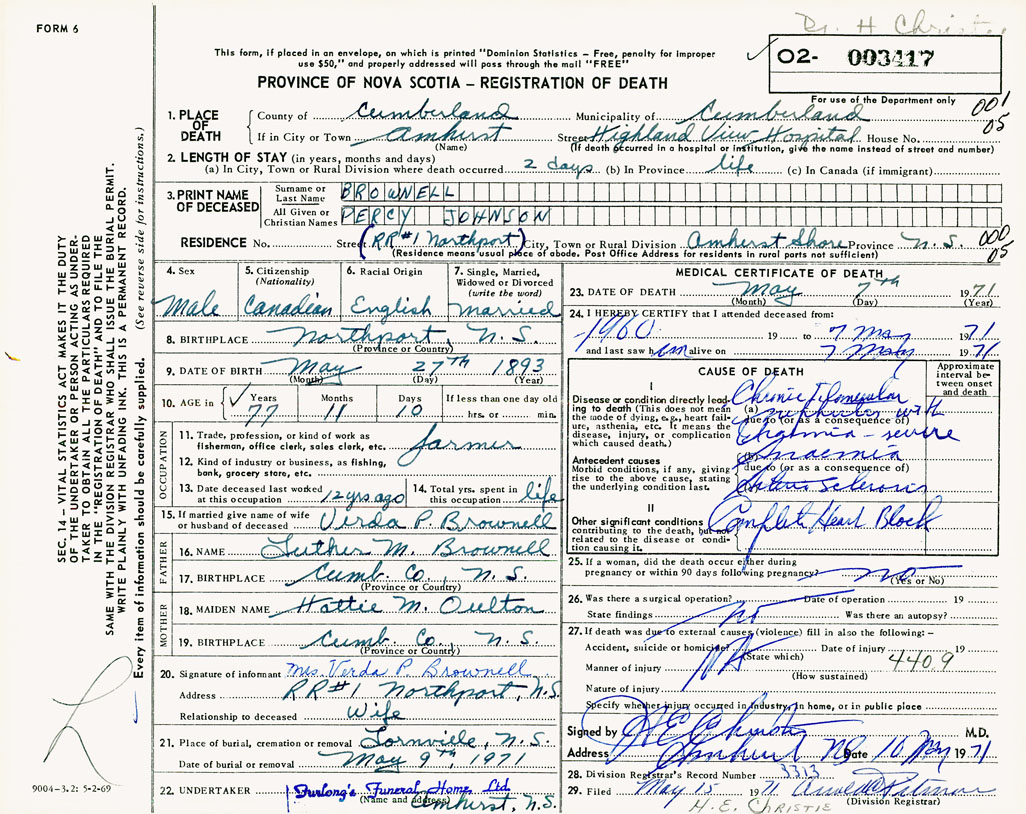 FORM 6
Dr. H Christie
This form, if placed in an envelope, on which is printed "Dominion Statistics – Free, penalty for improper
use $50," and properly addressed will pass through the mail "FREE"
02- 003417
PROVINCE OF NOVA SCOTIA – REGISTRATION OF DEATH
For use of the Department only
001
05
1. PLACE OF DEATH County of Cumberland Municipality of Cumberland
If in City or Town Amherst Street Highland View Hospital House No.
(Name) (If death occurred in a hospital or institution, give the name instead of street and number)
2. LENGTH OF STAY (in years, months and days)
(a) In City, Town or Rural Division where death occurred 2 days (b) In Province life (c) In Canada (if immigrant)
3. PRINT NAME OF DECEASED Surname or Last Name BROWNELL
All Given or Christian Names PERCY JOHNSON
RESIDENCE No. Street (RR#1 Northport) City, Town or Rural Division Amherst Shore Province N.S.
000
05
(Residence means usual place of abode. Post Office Address for residents in rural parts not sufficient)
4. Sex Male
5. Citizenship (Nationality) Canadian
6. Racial Origin English
7. Single, Married, Widowed or Divorced (write the word) married
8. BIRTHPLACE Northport, N.S.
(Province or Country)
9. DATE OF BIRTH May 27th 1893
(Month) (Day) (Year)
10. AGE in ✓ Years 77 Months 11 Days 10 If less than one day old hrs. or min.
OCCUPATION
11. Trade, profession, or kind of work as fisherman, office clerk, sales clerk, etc. farmer
12. Kind of industry or business, as fishing, bank, grocery store, etc.
13. Date deceased last worked at this occupation 12 yrs ago
14. Total yrs. spent in this occupation life
15. If married give name of wife or husband of deceased Verda P. Brownell
FATHER
16. NAME Luther M. Brownell
17. BIRTHPLACE Cumb. Co., N.S.
(Province or Country)
MOTHER
18. MAIDEN NAME Hattie M. Oulton
19. BIRTHPLACE Cumb. Co., N.S.
(Province or Country)
20. Signature of informant Mrs. Verda P Brownell
Address RR#1 Northport, N.S.
Relationship to deceased Wife
21. Place of burial, cremation or removal Lornville, N.S.
Date of burial or removal May 9th, 1971
22. UNDERTAKER Furlong's Funeral Home Ltd.
(Name and address) Amherst, N.S.
MEDICAL CERTIFICATE OF DEATH
23. DATE OF DEATH May 7th 1971
(Month) (Day) (Year)
24. I HEREBY CERTIFY that I attended deceased from:
1960 19 to 7 May 1971
and last saw him alive on 7 May 1971
CAUSE OF DEATH
Approximate interval between onset and death
I
Disease or condition directly leading to death (This does not mean the mode of dying, e.g., heart failure, asthenia, etc. It means the disease, injury, or complication which caused death.)
(a) Chronic Glomerular nephritis with
due to (or as a consequence of)
severe
(b) Anaemia
Antecedent causes
Morbid conditions, if any, giving rise to the above cause, stating the underlying condition last.
due to (or as a consequence of)
II
Other significant conditions contributing to the death, but not related to the disease or condition causing it.
Complete Heart Block
25. If a woman, did the death occur either during pregnancy or within 90 days following pregnancy? no
(Yes or No)
26. Was there a surgical operation? no Date of operation 19
State findings Was there an autopsy?
27. If death was due to external causes (violence) fill in also the following:–
Accident, suicide or homicide? NA Date of injury 19
(State which) 4409
Manner of injury
(How sustained)
Nature of injury
Specify whether injury occurred in industry, in home, or in public place
Signed by H E Christie M.D.
Address Amherst NS Date 10 May 1971
28. Division Registrar's Record Number 3313
29. Filed May 15 1971
(Division Registrar)
H.E. CHRISTIE
SEC. 14 – VITAL STATISTICS ACT MAKES IT THE DUTY
OF THE UNDERTAKER OR PERSON ACTING AS UNDER-
TAKER TO OBTAIN ALL THE PARTICULARS REQUIRED
IN THE "REGISTRATION OF DEATH" AND TO FILE THE
SAME WITH THE DIVISION REGISTRAR WHO SHALL ISSUE THE BURIAL PERMIT.
WRITE PLAINLY WITH UNFADING INK. THIS IS A PERMANENT RECORD.
Every item of information should be carefully supplied. (See reverse side for instructions.)
9004-3.2: 5-2-69